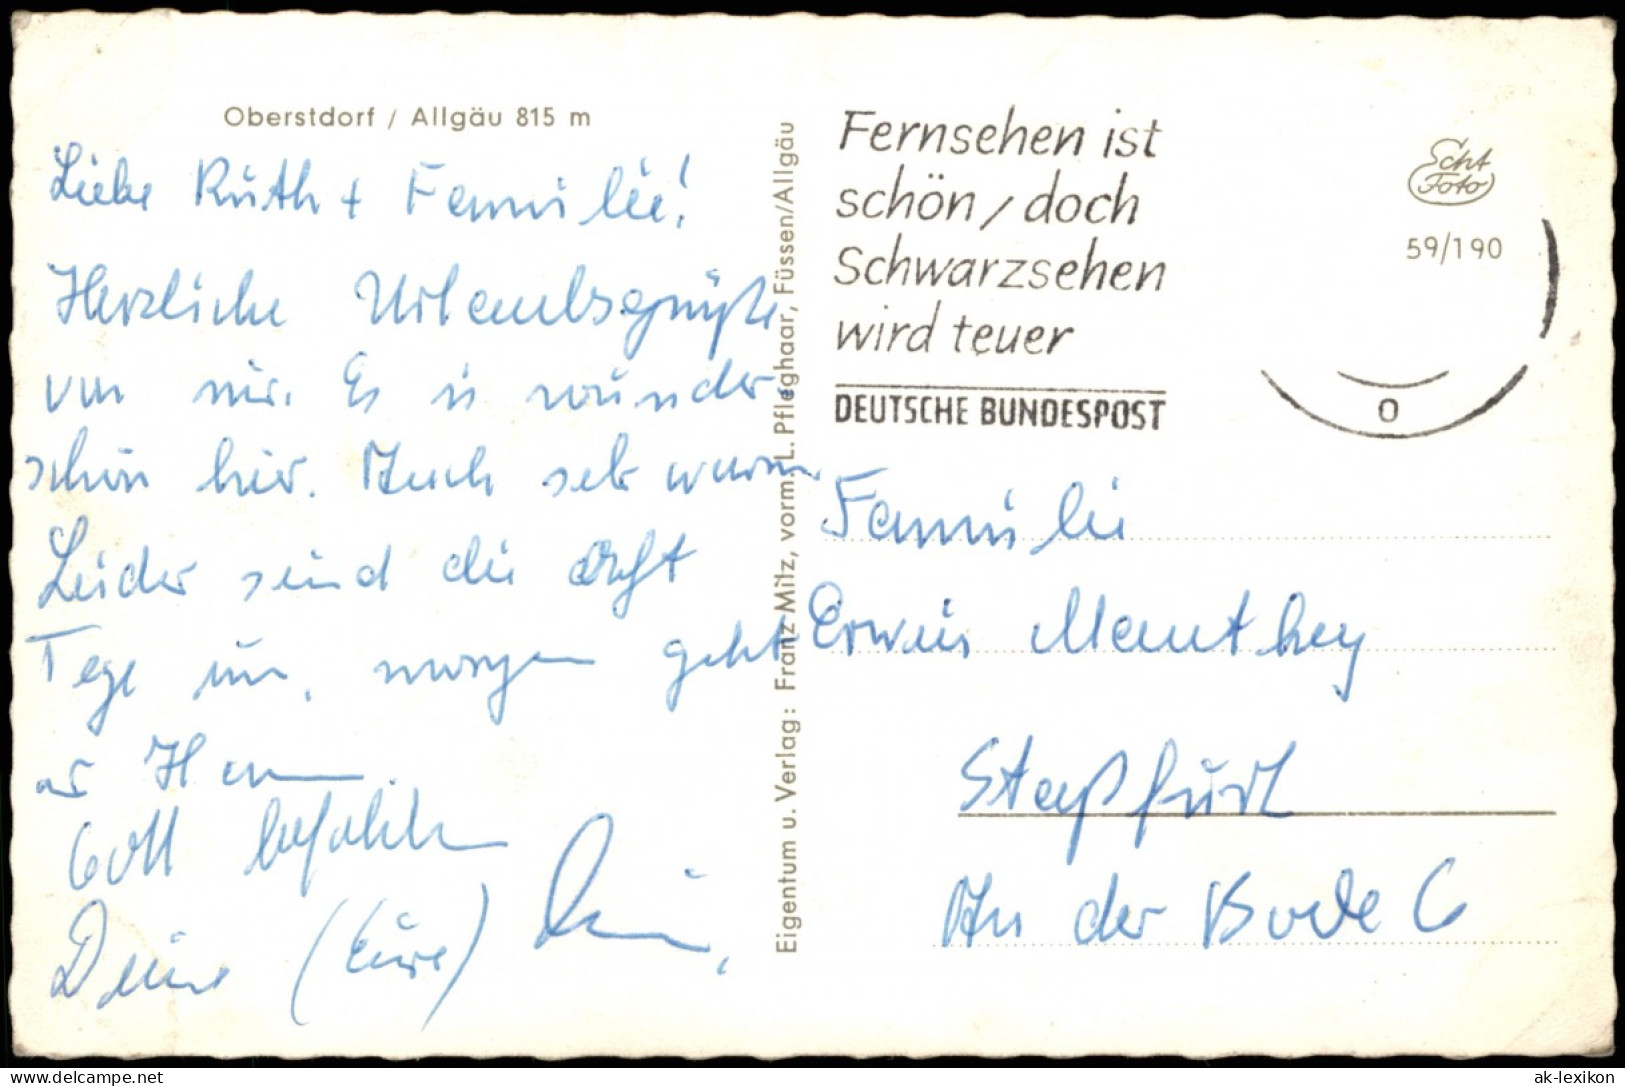 Oberstdorf / Allgäu 815 m
Liebe Ruth + Familie!
Herzliche Urlaubsgrüße
von mir. Es is wunder
schön hier. Auch sehr warm.
Leider sind die acht
Tage um, morgen geht
es
Gott befohlen
Deine (Eure)
Eigentum u. Verlag: Franz Milz, vorm. L. Pfleghaar, Füssen/Allgäu
Fernsehen ist
schön, doch
Schwarzsehen
wird teuer
DEUTSCHE BUNDESPOST
Echt
Foto
59/190
o
Familie
Erwin Manthey
Staßfurt
An der Bode 6
delcampe.net
ak-lexikon